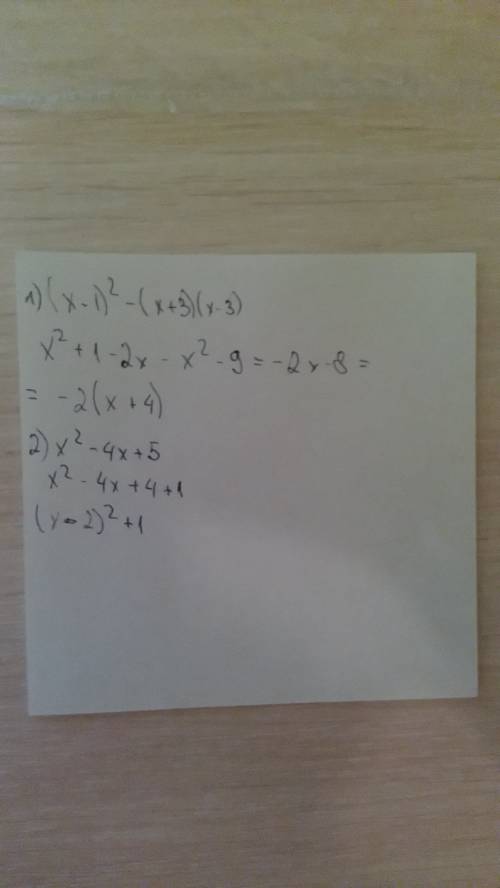 1) (x-1)² - (x+3)(x-3)
x² + 1 - 2x - x² - 9 = -2x - 8 =
= -2(x+4)
2) x² - 4x + 5
x² - 4x + 4 + 1
(x-2)² + 1